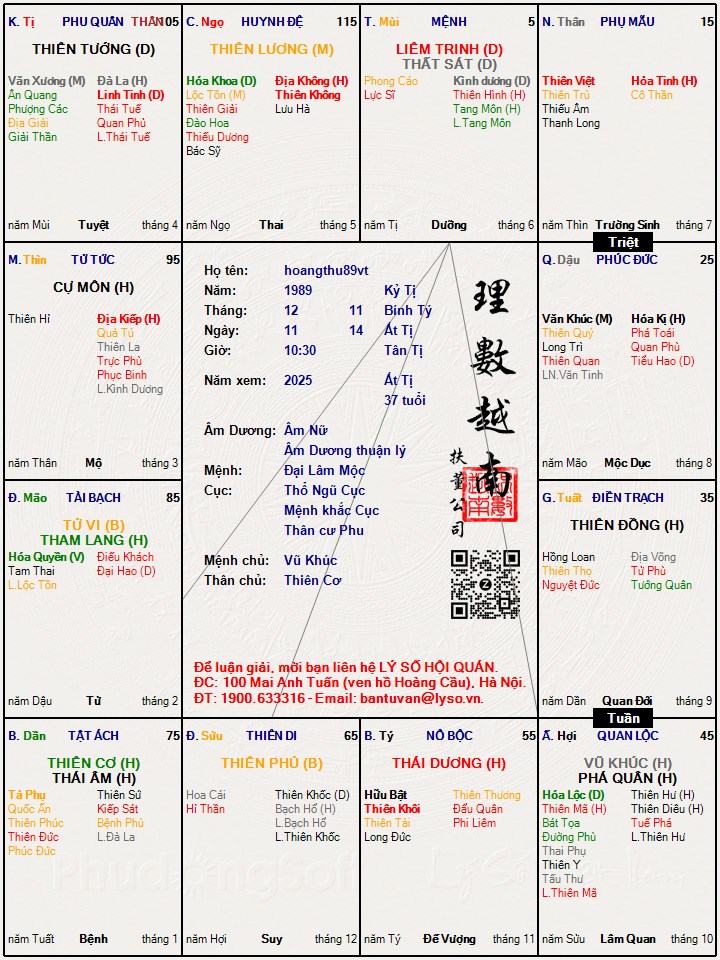 K. Tị PHU QUÂN THÂN 105
THIÊN TƯỚNG (D)
Văn Xương (M) Đà La (H)
Ân Quang Linh Tinh (D)
Phượng Các Thái Tuế
Địa Giải Quan Phủ
Giải Thần L.Thái Tuế
năm Mùi Tuyệt tháng 4
C. Ngọ HUYNH ĐỆ 115
THIÊN LƯƠNG (M)
Hóa Khoa (D) Địa Không (H)
Lộc Tồn (M) Thiên Không
Thiên Giải Lưu Hà
Đào Hoa
Thiếu Dương
Bác Sỹ
năm Ngọ Thai tháng 5
T. Mùi MỆNH 5
LIÊM TRINH (D)
THẤT SÁT (D)
Phong Cáo Kình dương (D)
Lực Sĩ Thiên Hình (H)
Tang Môn (H)
L.Tang Môn
năm Tị Dưỡng tháng 6
N. Thân PHỤ MẪU 15
Thiên Việt Hỏa Tinh (H)
Thiên Trù Cô Thần
Thiếu Âm
Thanh Long
năm Thìn Trường Sinh tháng 7
Triệt
M. Thìn TỬ TỨC 95
CỰ MÔN (H)
Thiên Hỉ Địa Kiếp (H)
Quả Tú
Thiên La
Trực Phù
Phục Binh
L.Kình Dương
năm Thân Mộ tháng 3
Họ tên: hoangthu89vt
Năm: 1989 Kỷ Tị
Tháng: 12 11 Bính Tý
Ngày: 11 14 Ất Tị
Giờ: 10:30 Tân Tị
Năm xem: 2025 Ất Tị
37 tuổi
Âm Dương: Âm Nữ
Âm Dương thuận lý
Mệnh: Đại Lâm Mộc
Cục: Thổ Ngũ Cục
Mệnh khắc Cục
Thân cư Phu
Mệnh chủ: Vũ Khúc
Thân chủ: Thiên Cơ
理數越南
扶董公司
Để luận giải, mời bạn liên hệ LÝ SỐ HỘI QUÁN.
ĐC: 100 Mai Anh Tuấn (ven hồ Hoàng Cầu), Hà Nội.
ĐT: 1900.633316 - Email: bantuvan@lyso.vn.
Q. Dậu PHÚC ĐỨC 25
Văn Khúc (M) Hóa Kị (H)
Thiên Quý Phá Toái
Long Trì Quan Phù
Thiên Quan Tiểu Hao (D)
LN.Văn Tinh
năm Mão Mộc Dục tháng 8
Đ. Mão TÀI BẠCH 85
TỬ VI (B)
THAM LANG (H)
Hóa Quyền (V) Điếu Khách
Tam Thai Đại Hao (D)
L.Lộc Tồn
năm Dậu Tử tháng 2
G. Tuất ĐIỀN TRẠCH 35
THIÊN ĐỒNG (H)
Hồng Loan Địa Võng
Thiên Thọ Tử Phù
Nguyệt Đức Tướng Quân
năm Dần Quan Đới tháng 9
Tuần
B. Dần TẬT ÁCH 75
THIÊN CƠ (H)
THÁI ÂM (H)
Tả Phụ Thiên Sứ
Quốc Ấn Kiếp Sát
Thiên Phúc Bệnh Phù
Thiên Đức L.Đà La
Phúc Đức
năm Tuất Bệnh tháng 1
Đ. Sửu THIÊN DI 65
THIÊN PHỦ (B)
Hoa Cái Thiên Khốc (D)
Hỉ Thần Bạch Hổ (H)
L.Bạch Hổ
L.Thiên Khốc
năm Hợi Suy tháng 12
B. Tý NÔ BỘC 55
THÁI DƯƠNG (H)
Hữu Bật Thiên Thương
Thiên Khôi Đẩu Quân
Thiên Tài Phi Liêm
Long Đức
năm Tý Đế Vượng tháng 11
Ấ. Hợi QUAN LỘC 45
VŨ KHÚC (H)
PHÁ QUÂN (H)
Hóa Lộc (D) Thiên Hư (H)
Thiên Mã (H) Thiên Diêu (H)
Bát Tọa Tuế Phá
Đường Phù L.Thiên Hư
Thai Phụ
Thiên Y
Tấu Thư
L.Thiên Mã
năm Sửu Lâm Quan tháng 10